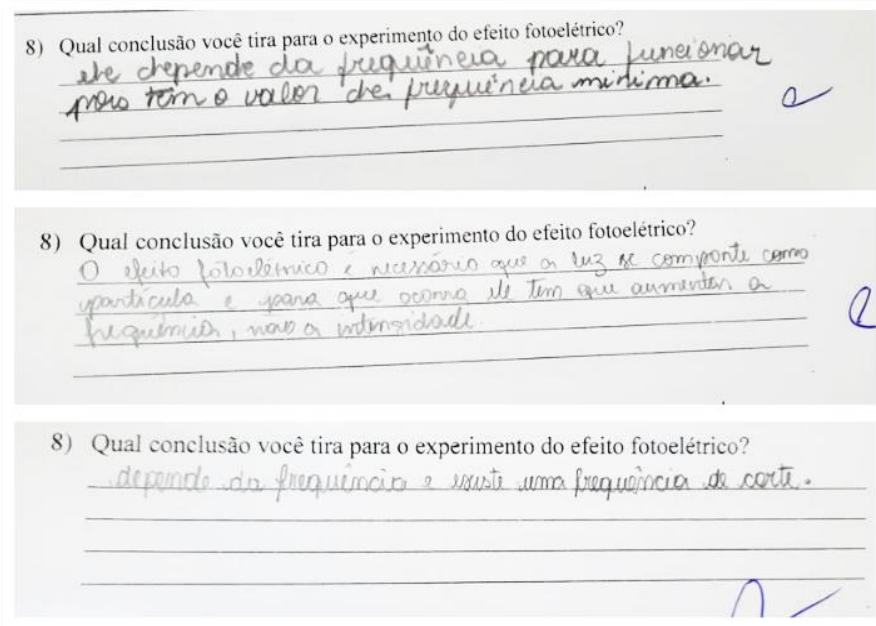 8) Qual conclusão você tira para o experimento do efeito fotoelétrico?
ele depende da frequência para funcionar
pois tem o valor de frequência minima.
8) Qual conclusão você tira para o experimento do efeito fotoelétrico?
O efeito fotoelétrico é necessário que a luz se comporte como
particula e para que ocorra ele tem que aumentar a
frequência, não a intensidade.
8) Qual conclusão você tira para o experimento do efeito fotoelétrico?
depende da frequência e existe uma frequência de corte.